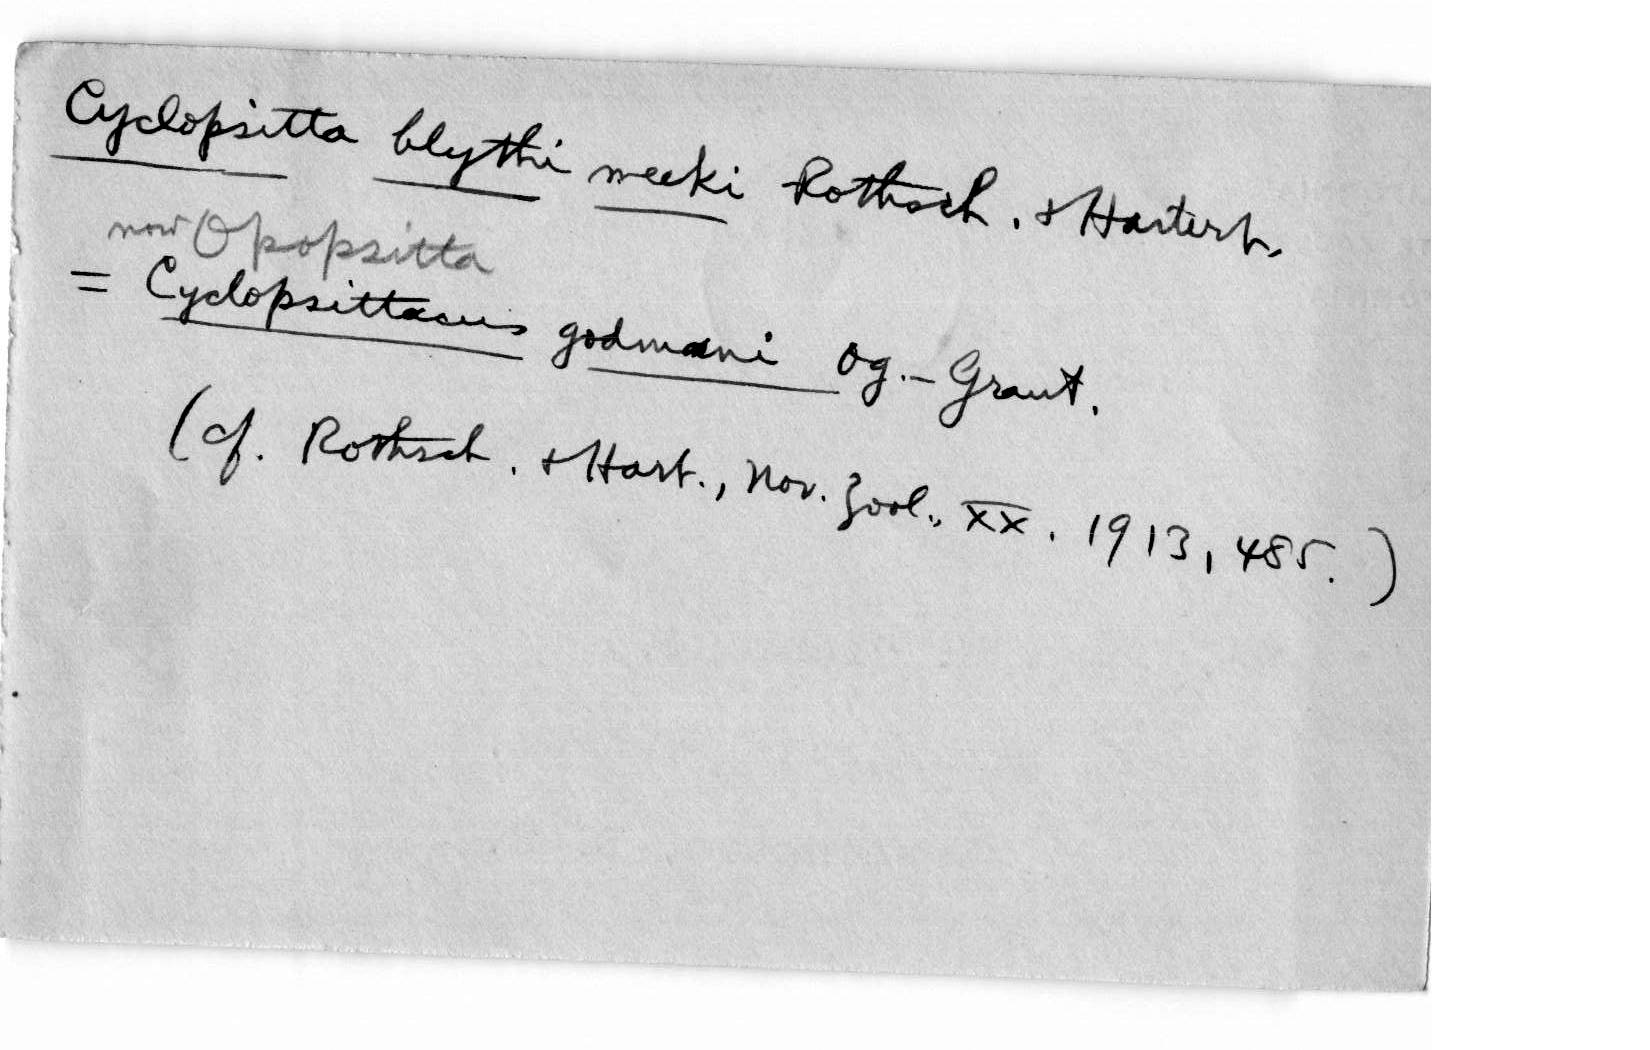 Cyclopsitta blythi meeki Rothsch. & Hartert.
now Opopsitta
= Cyclopsittacus godmani Og.-Grant.
(cf. Rothsch. & Hart., Nov. Zool., XX. 1913, 485.)